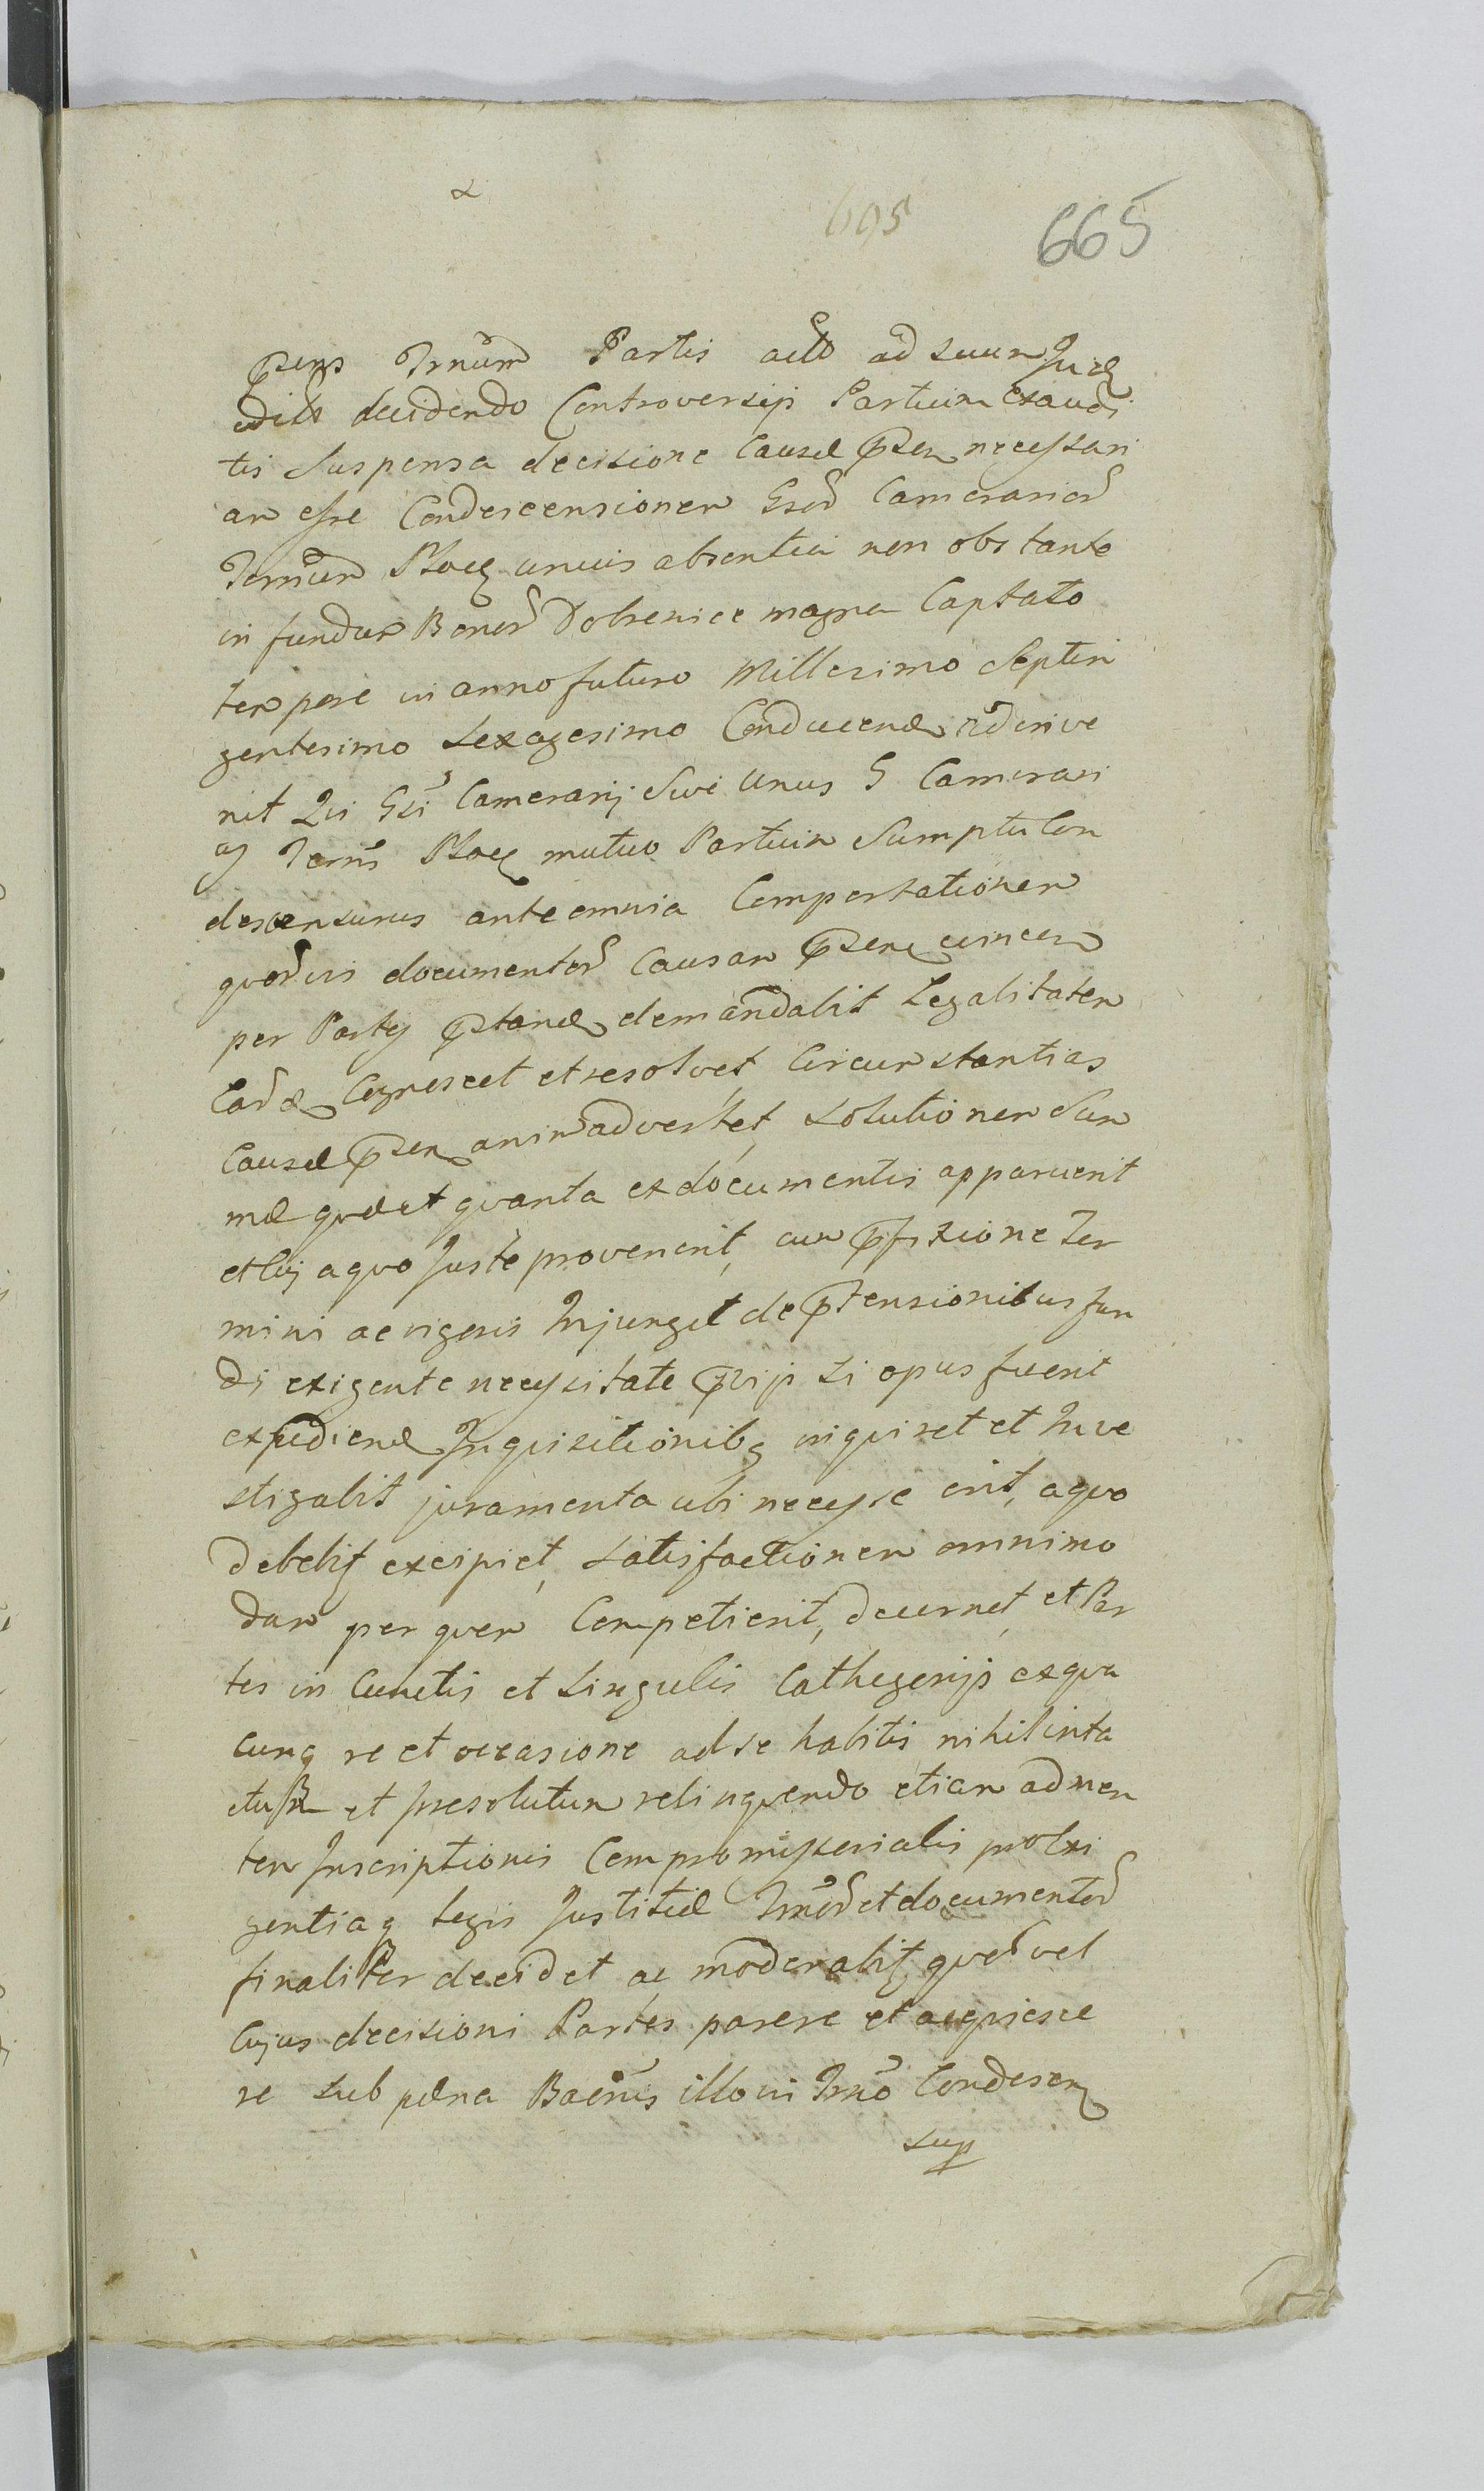 695 665
p̄sens Trn̄um Partis actō ad suum Jud̄
edito decidendo Controversijs Partium exaudi
tis Suspensa decisione Causæ p̄sen necessari
am esse Condescensionem Gsōr Camerariōr
Terrn̄um Ploc̄ unius absentia non obstante
in fundum Bonōr Dobrenice magna Captato
tempore in anno futuro Millesimo Septin
gentesimo Sexagesimo Conducend̄ adinve
nit Qui Gsi Camerarij Sive Unus G Camerari
us Terrn̄s Ploc̄ mutuo Partium Sumptu Con
descensurus ante omnia Comportationem
quorūvis documentōr Causam p̄sen
per Partes p̄stand̄ demandabit Legalitatem
Eord̄ Cognoscet et resolvet, Circumstantias
Causæ p̄sen animadvertet, Solutionem Sum
mæ quæ et quanta ex documentis apparuerit
et Cuj a quo Juste provenerit, cum p̄fixione Ter
mini ac rigoris Injunget de p̄tensionibus fun
di exigente necessitate p̄vijs si opus fuerit
expediend̄ Inquisitionibq inquiret et Inve
stigabit juramenta ubi necesse erit, a quo
debebit excipiet, Satisfactionem omnimo
dam per quem Competierit, decernet, et Par
tes in Cunctis et Singulis Cathegorijs ex qua
cunq re et occasione ad se habitis nihil inta
ctum et Irresolutum relinquendo etiam ad men
tem Inscriptionis Compromissorialis pro exi
gentiaq Legis Justitiæ Trn̄ōr et documentōr
finaliter decidet ac moderabit, quōr vel
Cujus decisioni Partes parere et acquiesce
re sub pæna Baen̄is illo in Trn̄o Condescen
sup